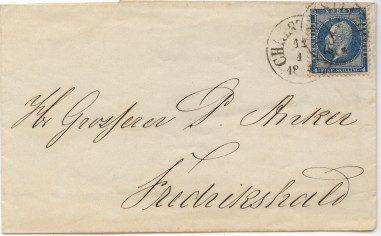 CHRIST
12
1
18
Hr Grosserer P. Anker
Fredrikshald